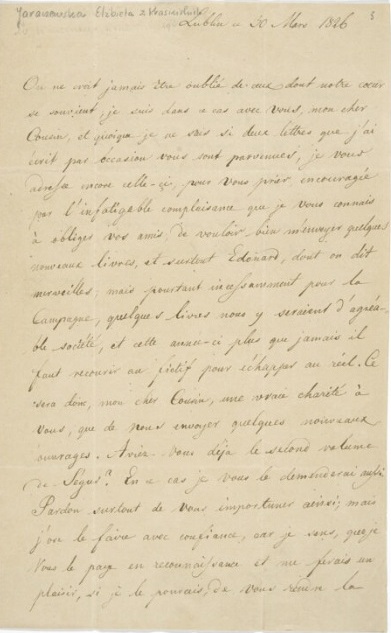 Jaraczewska Elżbieta z Krasińskich
Lublin ce 30 Mars 1826
5
On ne croit jamais être oublié de ceux dont notre cœur
se souvient, je suis dans ce cas avec vous, mon cher
Cousin, et quoique je ne sais si deux lettres que j'ai
écrit par occasion vous sont parvenues, je vous
adresse encore celle-ci, pour vous prier encouragée
par l'infatigable complaisance que je vous connais
à obliger vos amis, de vouloir bien m'envoyer quelques
nouveaux livres, et surtout Edouard, dont on dit
merveilles; mais pourtant incessamment pour la
Campagne, quelques livres nous y seraient d'agréa-
ble société, et cette année-ci plus que jamais il
faut recourir au fictif pour échapper au réel. Ce
sera donc, mon cher Cousin, une vraie charité à
vous, que de nous envoyer quelques nouveaux
ouvrages. Avez-vous déja le second volume
de Ségur? En ce cas je vous le demanderai aussi.
Pardon surtout de vous importuner ainsi; mais
j'ose le faire avec confiance, car je sens, que je
vous le paye en reconnaissance et me ferais un
plaisir, si je le pouvais, de vous rendre la